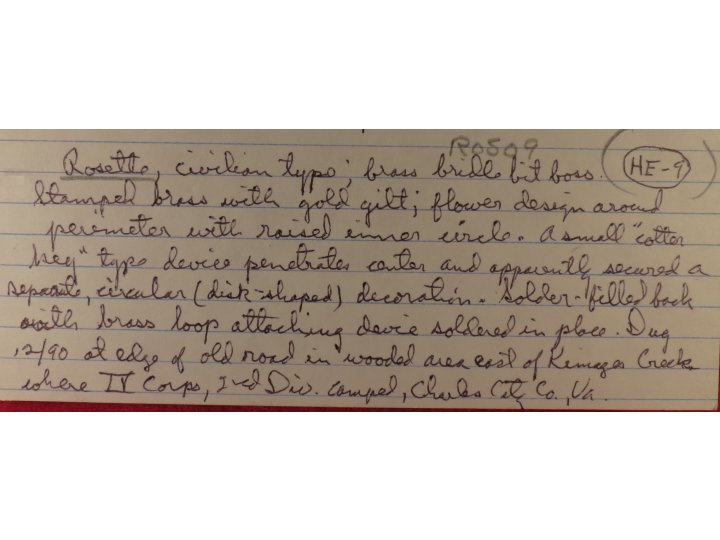 R0509
HE-9
Rosette, civilian type; brass bridle bit boss.
Stamped brass with gold gilt; flower design around
perimeter with raised inner circle. A small "cotter
key" type device penetrates center and apparently secured a
separate, circular (disk-shaped) decoration. Solder-filled back
with brass loop attaching device soldered in place. Dug
12/90 at edge of old road in wooded area east of Kimages Creek
where IV Corps, Div. camped, Charles City Co., Va.